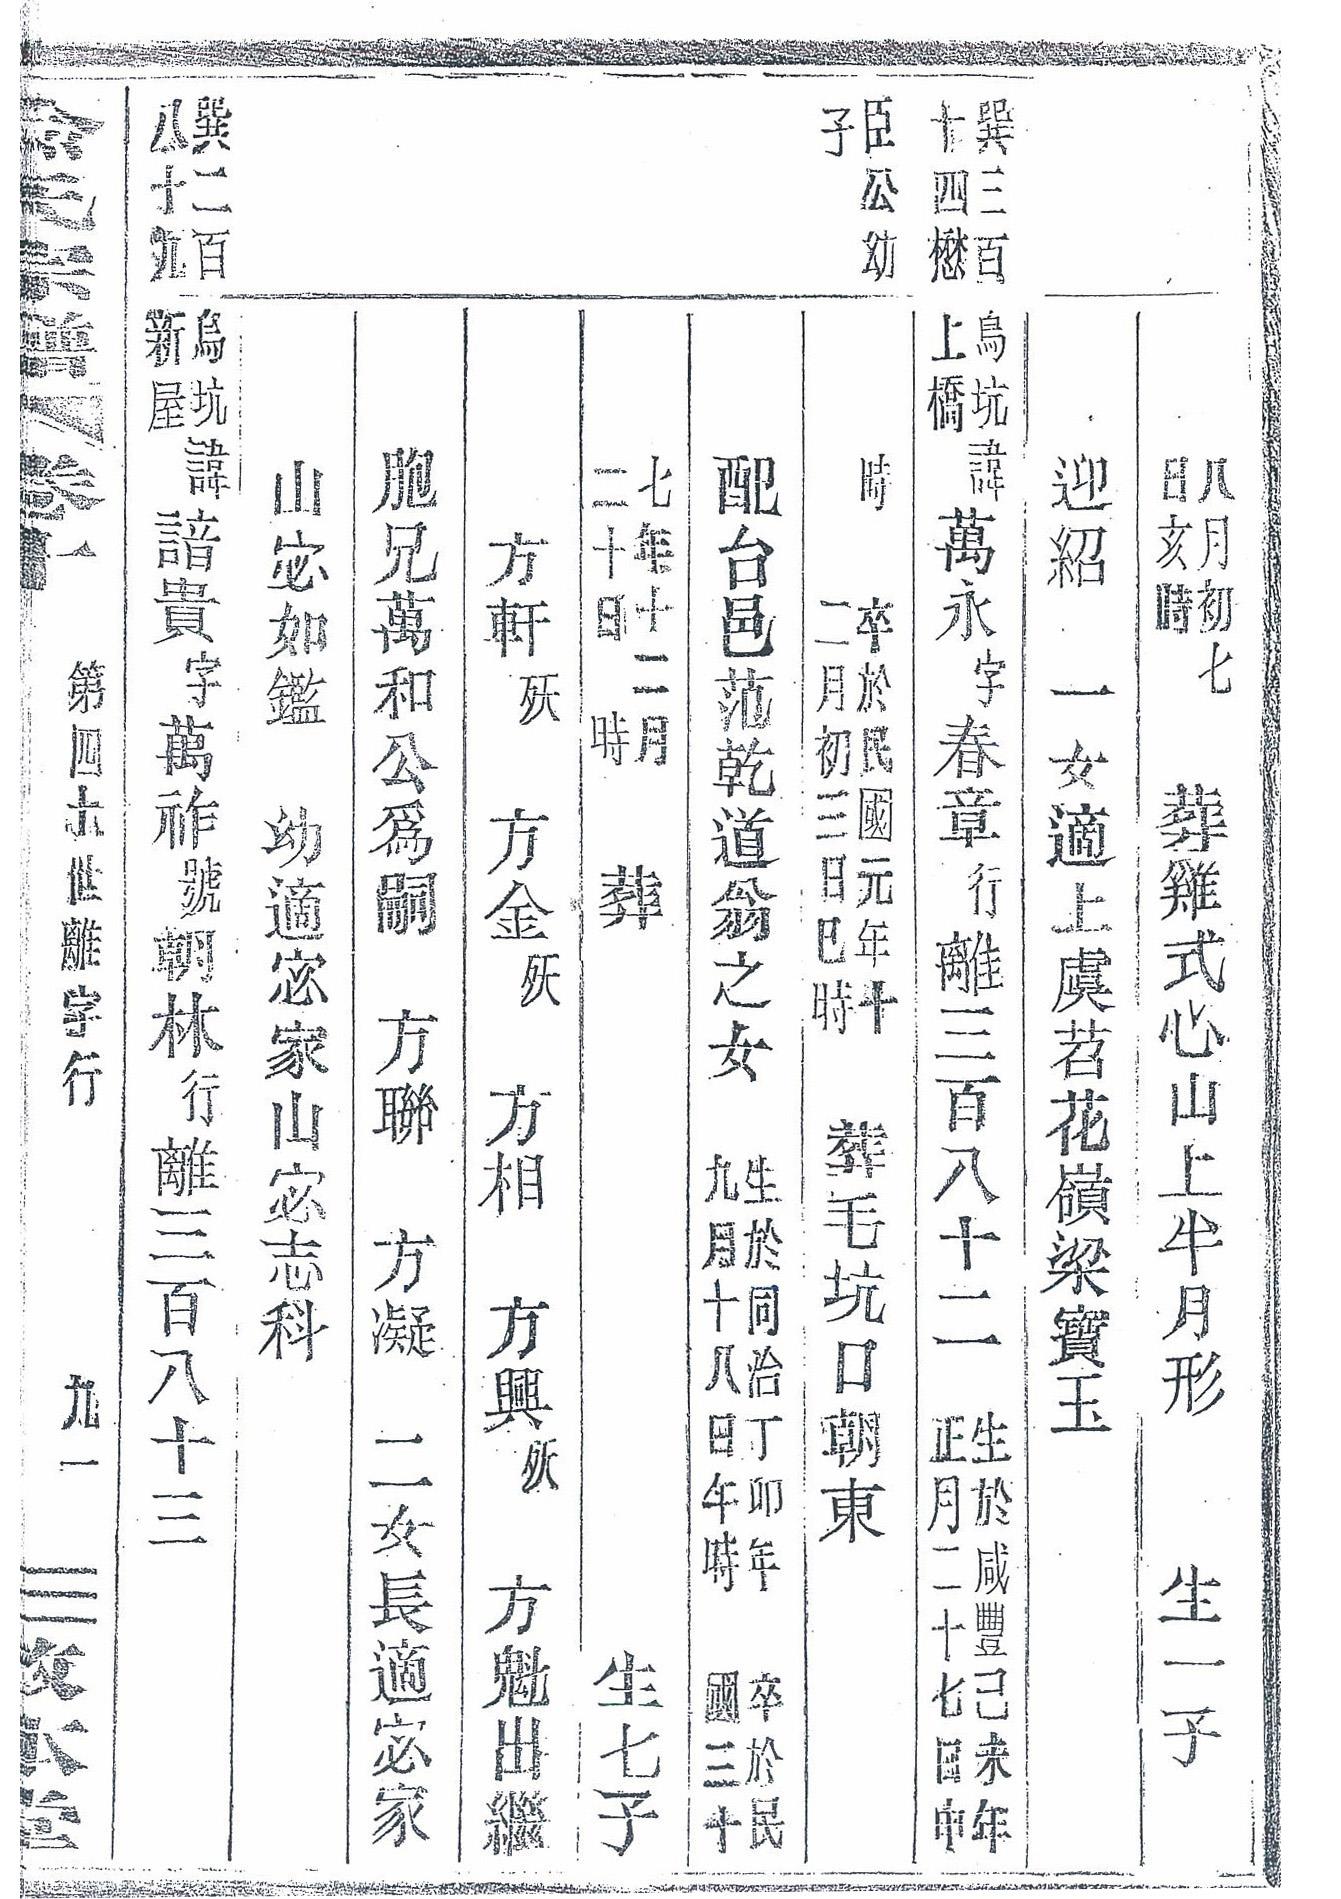 八月初七
日亥時
葬雞式心山上半月形
生一子
迎紹　一女適上虞苕花嶺梁寶玉
巽三百
十四懋
臣公幼
子
烏坑
上橋
諱萬永字春章行離三百八十二
生於咸豐己未年
正月二十七日申
時
卒於民國元年十
二月初三日巳時
葬毛坑口朝東
配台邑范乾道翁之女
生於同治丁卯年
九月十八日午時
卒於民
國三十
七年十二月
二十日　時
葬
生七子
方軒殀　方金殀　方相　方興殀　方魁出繼
胞兄萬和公爲嗣　方聯　方凝　二女長適宓家
山宓如鑑　幼適宓家山宓志科
巽二百
八十九
烏坑
新屋
諱諳貴字萬祚號朝林行離三百八十三
宗譜　卷一
第四十世離字行
九一
本堂